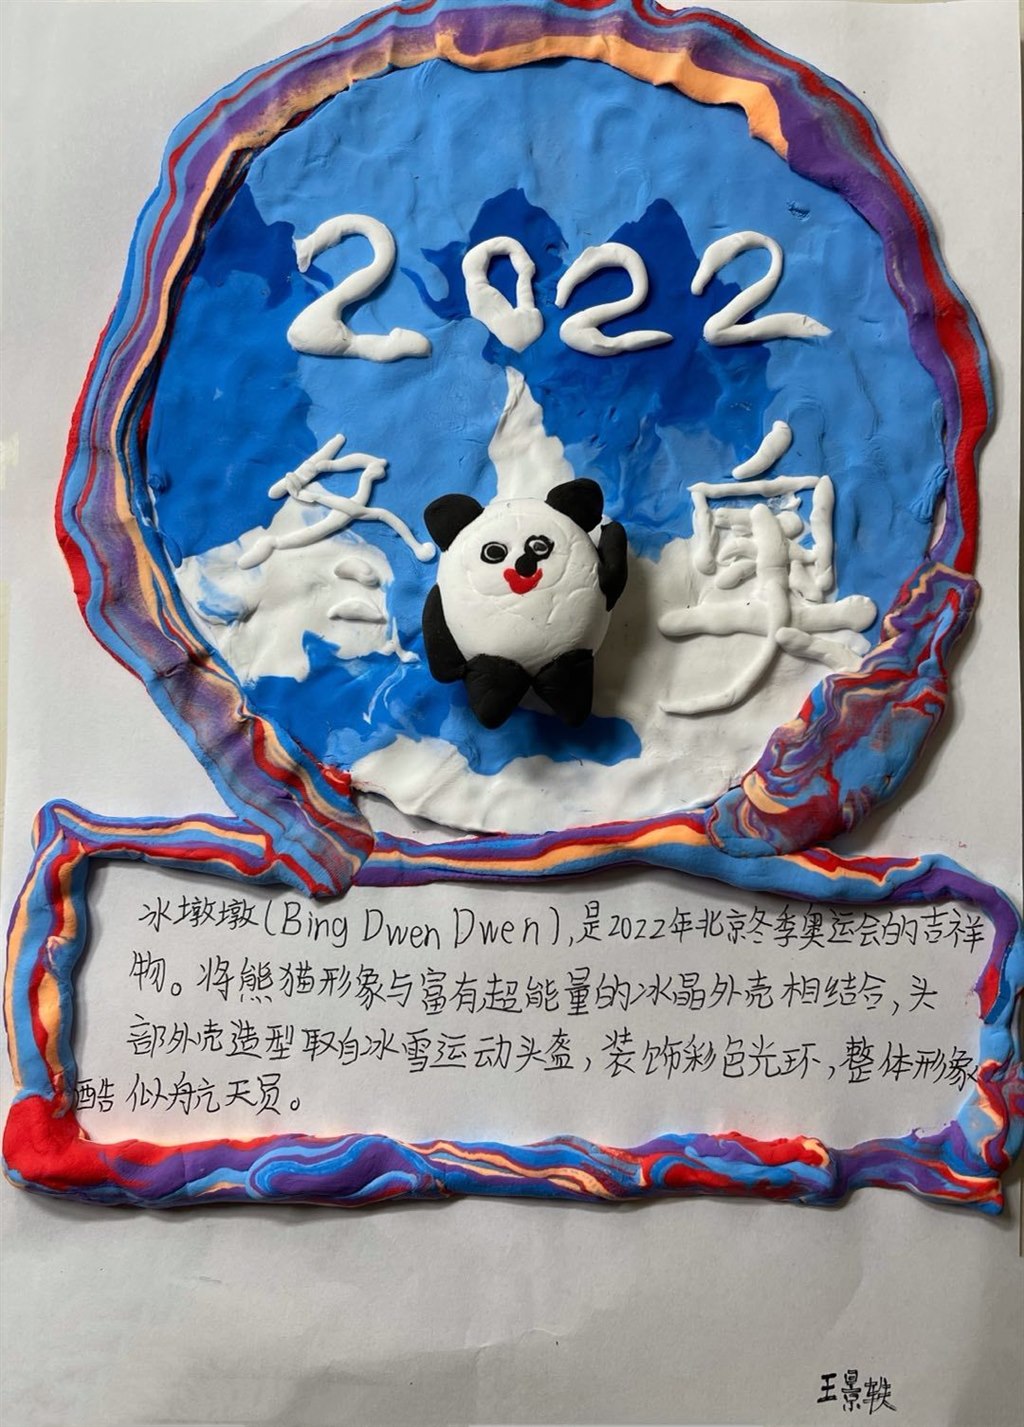 2022
冬奥
冰墩墩(Bing Dwen Dwen),是2022年北京冬季奥运会的吉祥
物。将熊猫形象与富有超能量的冰晶外壳相结合,头
部外壳造型取自冰雪运动头盔,装饰彩色光环,整体形象
酷似航天员。
王景轶